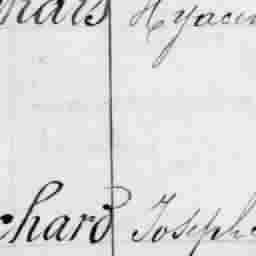 nais Hyacin
chard Joseph